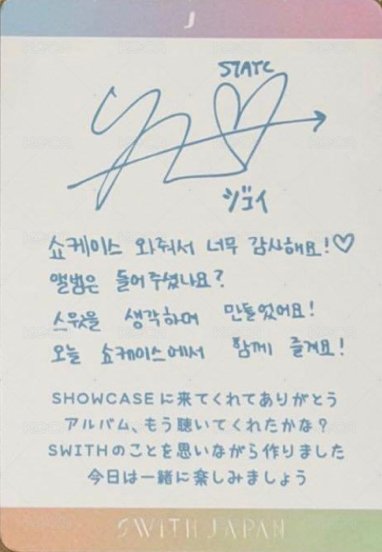 J
STAYC
シ고イ
쇼케이스 와줘서 너무 감사해요!♡
앨범은 들어주셨나요?
스윗을 생각하며 만들었어요!
오늘 쇼케이스에서 함께 즐겨요!
SHOWCASEに来てくれてありがとう
アルバム、もう聴いてくれたかな?
SWITHのことを思いながら作りました
今日は一緒に楽しみましょう
SWITH JAPAN